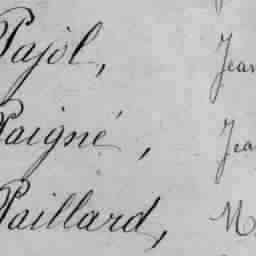 Pajol, Jean
Paigné, Jea
Paillard, M